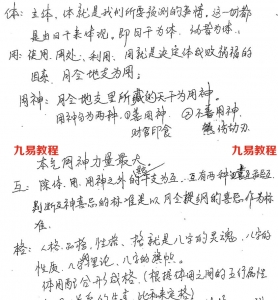 体：主体、体就是我们所要预测的事情。这一切都
是由日干来体现。即日干为体，
用：使用、用处、利用、用就是决定体成败祸福的
因素，月令地支为用；
用神：月令地支里所藏的天干为用神。
用神分为两种，①善用神 ②不善用神
财官印食
九易教程
九易教程
本气用神力量最大。
互：除体、用、用神之外的干支为互，互有两种
判断互神喜忌的标准是以月令提纲的喜忌作为标
准。
格：人格、品格、性格、格就是八字的灵魂、八字的
性质、八字的旗帜。
体用配合形成格，（根据体用之间的五行属性